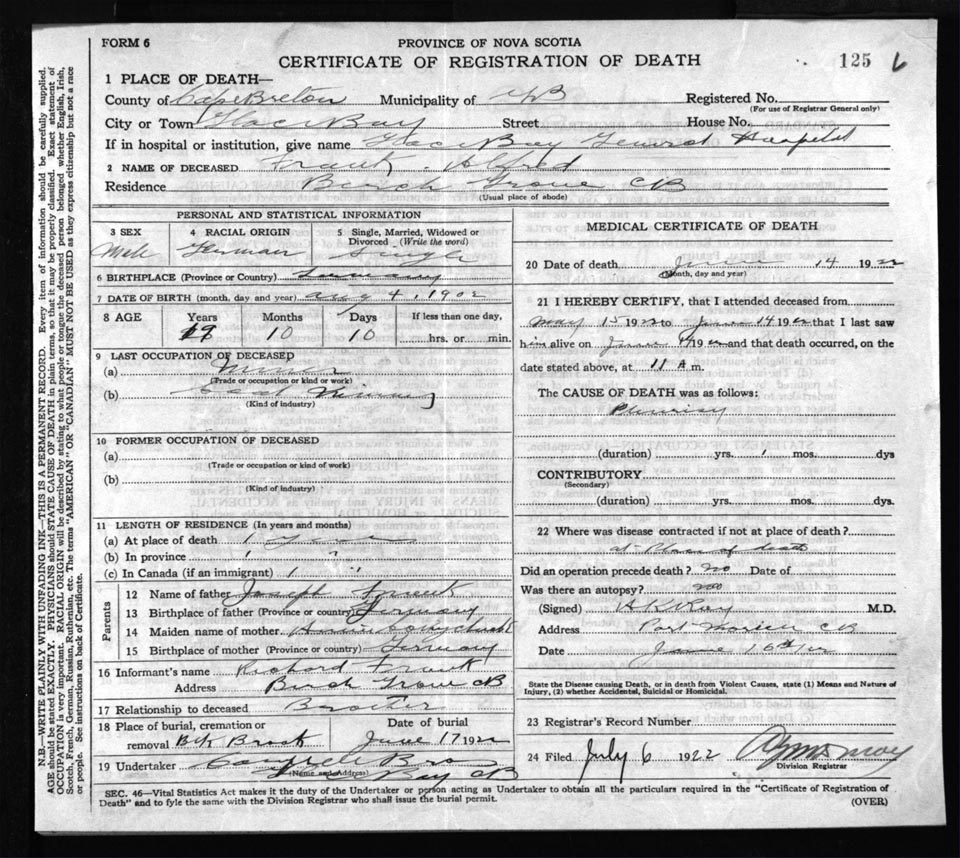 FORM 6
PROVINCE OF NOVA SCOTIA
CERTIFICATE OF REGISTRATION OF DEATH
125 6
1 PLACE OF DEATH—
County of Cape Breton Municipality of CB Registered No.
(For use of Registrar General only)
City or Town Glace Bay Street House No.
If in hospital or institution, give name Glace Bay General Hospital
2 NAME OF DECEASED Frank Alfred
Residence Birch Grove CB
(Usual place of abode)
PERSONAL AND STATISTICAL INFORMATION
3 SEX
Male
4 RACIAL ORIGIN
German
5 Single, Married, Widowed or Divorced (Write the word)
Single
6 BIRTHPLACE (Province or Country) Germany
7 DATE OF BIRTH (month, day and year) Aug 4, 1902
8 AGE Years Months Days If less than one day,
19 10 10 hrs. or min.
9 LAST OCCUPATION OF DECEASED
(a) Miner
(Trade or occupation or kind or work)
(b) Coal Mining
(Kind of industry)
10 FORMER OCCUPATION OF DECEASED
(a)
(Trade or occupation or kind of work)
(b)
(Kind of industry)
11 LENGTH OF RESIDENCE (In years and months)
(a) At place of death 1 year
(b) In province 1 "
(c) In Canada (if an immigrant) 1 "
Parents
12 Name of father Joseph Frank
13 Birthplace of father (Province or country) Germany
14 Maiden name of mother
15 Birthplace of mother (Province or country) Germany
16 Informant's name Richard Frank
Address Birch Grove CB
17 Relationship to deceased Brother
18 Place of burial, cremation or removal Blk Brook
Date of burial
June 17 1922
19 Undertaker
(Name and Address) Bay CB
MEDICAL CERTIFICATE OF DEATH
20 Date of death June 14 1922
(Month, day and year)
21 I HEREBY CERTIFY, that I attended deceased from
May 15 1922 to June 14 1922 that I last saw
him alive on June 1922 and that death occurred, on the
date stated above, at 11 A.m.
The CAUSE OF DEATH was as follows:
Pleurisy
(duration) yrs. 1 mos. dys
CONTRIBUTORY
(Secondary)
(duration) yrs. mos. dys.
22 Where was disease contracted if not at place of death?
at Place of death
Did an operation precede death? no Date of
Was there an autopsy? no
(Signed) H K Roy M.D.
Address Port Morien CB
Date June 16th/22
State the Disease causing Death, or in death from Violent Causes, state (1) Means and Nature of
Injury, (2) whether Accidental, Suicidal or Homicidal.
23 Registrar's Record Number
24 Filed July 6 1922
Division Registrar
SEC. 46—Vital Statistics Act makes it the duty of the Undertaker or person acting as Undertaker to obtain all the particulars required in the "Certificate of Registration of
Death" and to fyle the same with the Division Registrar who shall issue the burial permit.
(OVER)
N.B.—WRITE PLAINLY WITH UNFADING INK—THIS IS A PERMANENT RECORD. Every item of information should be carefully supplied.
AGE should be stated EXACTLY. PHYSICIANS should STATE CAUSE OF DEATH in plain terms, so that it may be properly classified. Exact statement of
OCCUPATION is very important. RACIAL ORIGIN will be described by stating to what people or tongue the deceased person belonged whether English, Irish,
Scotch, French, German, Russian, Ruthenian, etc. The terms "AMERICAN" OR "CANADIAN" MUST NOT BE USED as they express citizenship but not a race
or people. See instructions on back of Certificate.